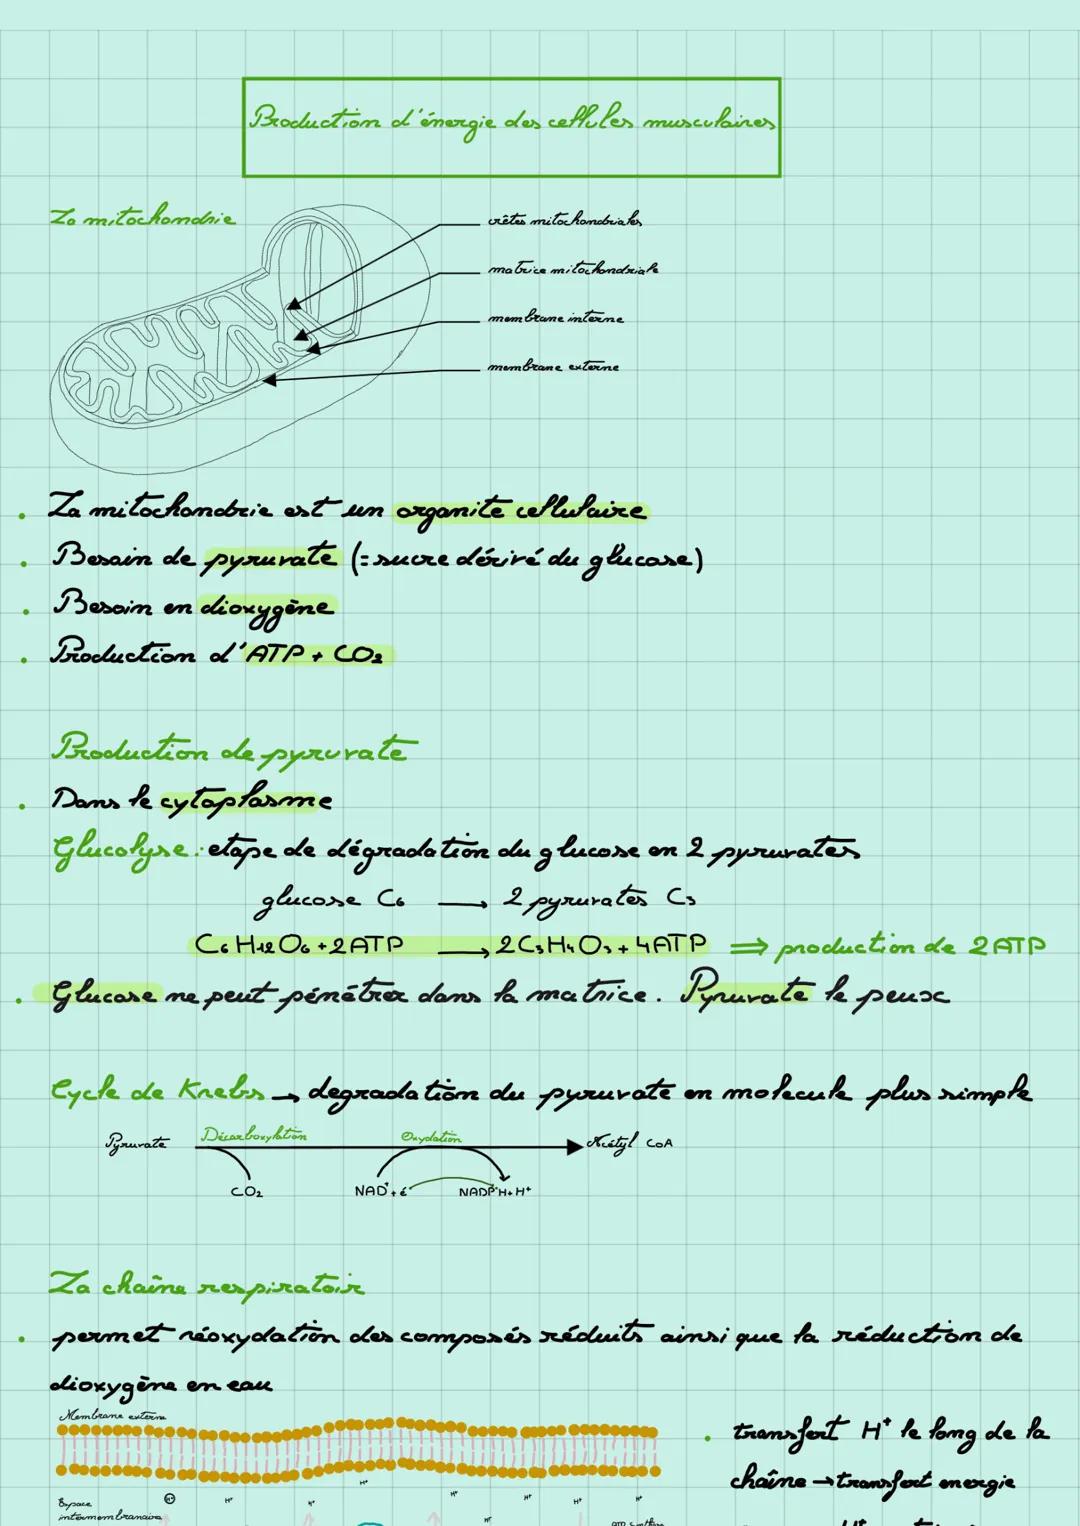 Production d'énergie des cellules musculaires
La mitochondrie
crêtes mitochondriales
matrice mitochondriale
membrane interne
membrane externe
. La mitochondrie est un organite cellulaire
. Besoin de pyruvate (= sucre dérivé du glucose)
. Besoin en dioxygène
. Production d'ATP + CO₂
Production de pyruvate
. Dans le cytoplasme
Glucolyse : etape de dégradation du glucose en 2 pyruvates
glucose C₆ → 2 pyruvates C₃
C₆H₁₂O₆ + 2ATP → 2C₃H₄O₃ + 4ATP ⇒ production de 2 ATP
. Glucose ne peut pénétrer dans la matrice. Pyruvate le peux
Cycle de Krebs → degradation du pyruvate en molecule plus simple
Pyruvate Décarboxylation Oxydation Acétyl CoA
CO₂ NAD⁺ + é NADP⁺H + H⁺
La chaîne respiratoir
. permet réoxydation des composés réduits ainsi que la réduction de
dioxygène en eau
Membrane externe
. transfert H⁺ le long de la
chaîne → transfert energie
Espace
intermembranaire
H⁺ H⁺ H⁺ H⁺ H⁺ H⁺ H⁺ H⁺ H⁺